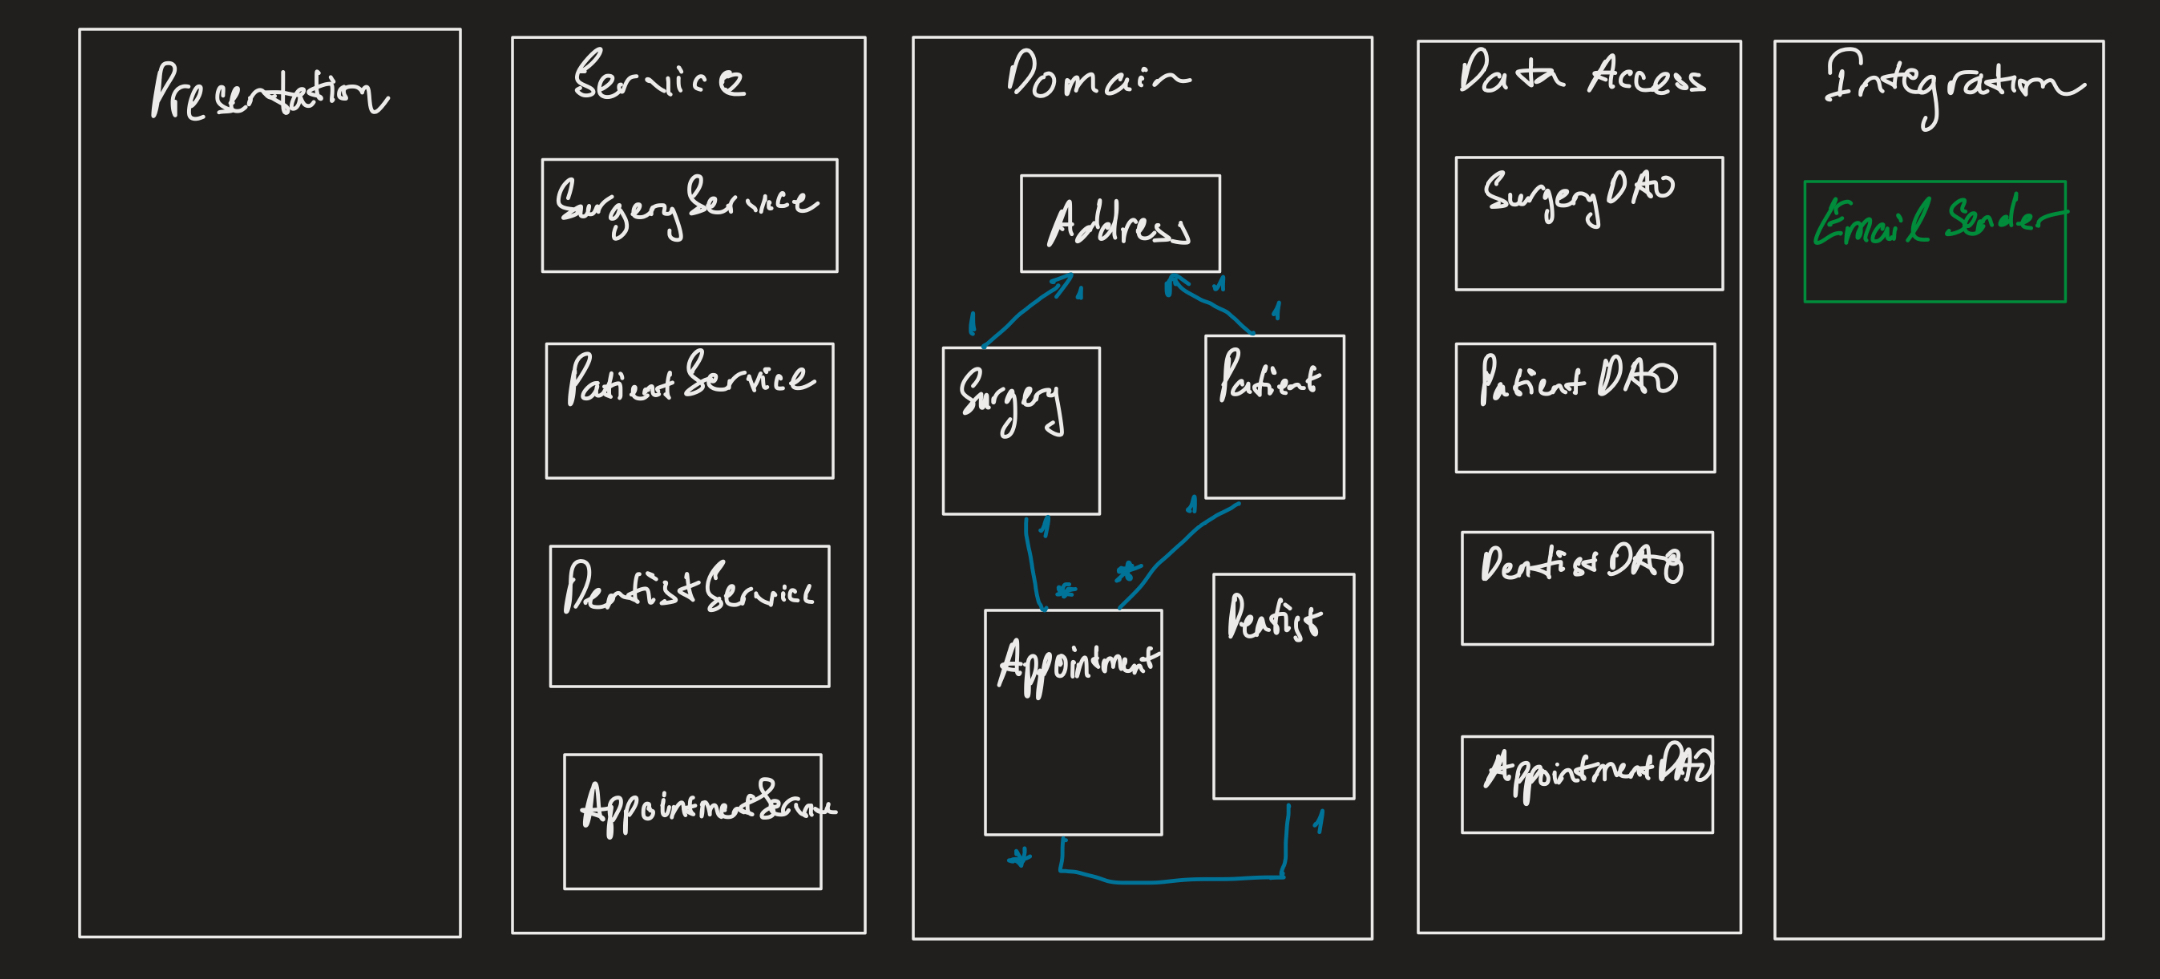 Presentation
Service
SurgeryService
PatientService
DentistService
AppointmentService
Domain
Address
1
1
1
1
Surgery
Patient
1
1
*
*
Appointment
Dentist
*
1
Data Access
SurgeryDAO
PatientDAO
DentistDAO
AppointmentDAO
Integration
Email Sender